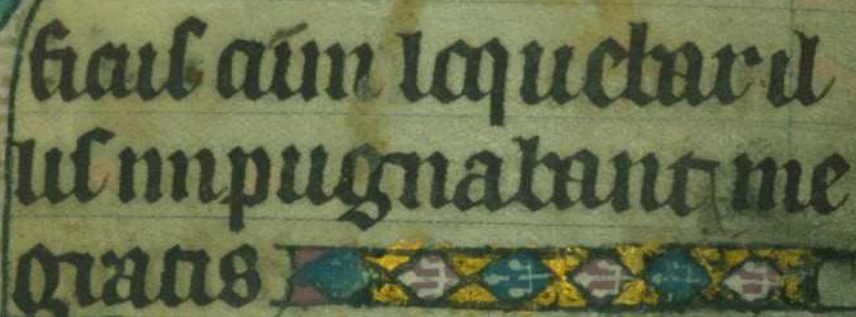 ficus cum loquebar il
lis inpugnabant me
gratis